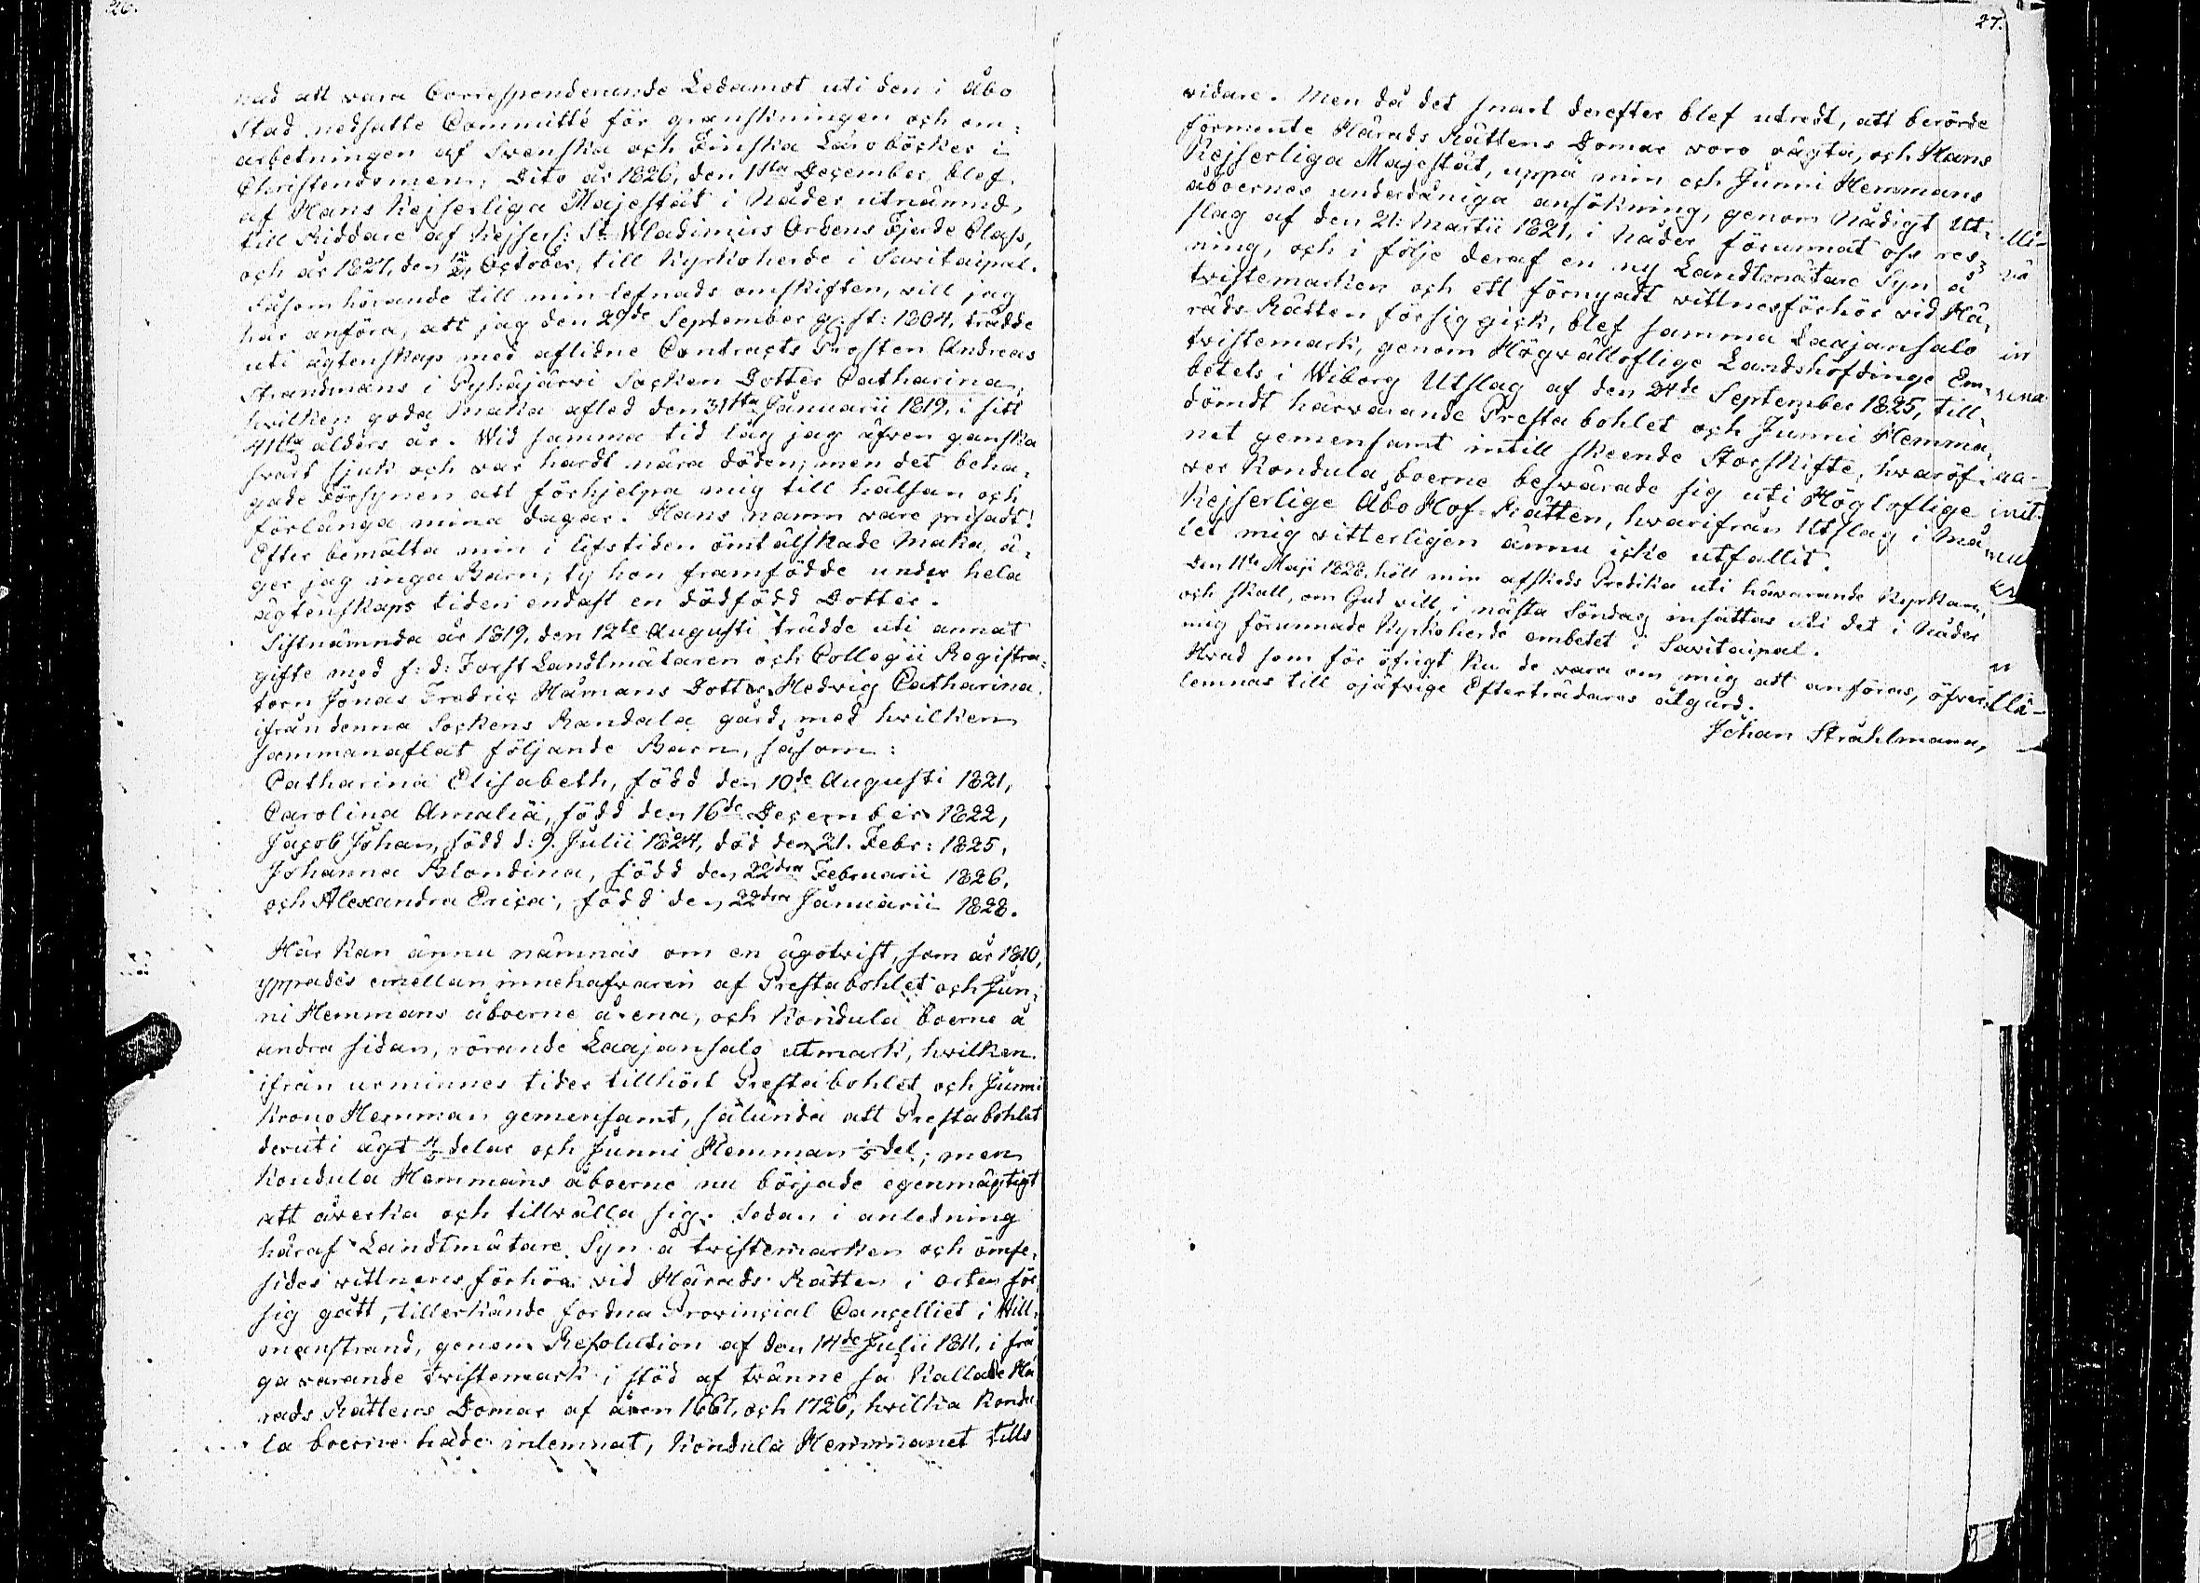 26.
nad att vara Correspenderande Ledamot uti den i Åbo
Stad nedsatte Committé för granskningen och om-
arbetningen af Svenska och Finska Läroböcker i
Christendomen; Dito år 1826, den 1sta December, blef
af Hans Kejserliga Majestät i Nåder utnämnd,
till Riddare af Kejserl: St Wladimirs Ordens Fjerde Class,
och år 1827, den October, till Kyrkoherde i Savitaipal.
Såsom hörande till min lefnads omskiften, vill jag
här anföra, att jag den 29de September g: st: 1804, trädde
uti ägtenskap med aflidne Contracts Prosten Andreas
Strandmans i Pyhäjärvi Socken Dotter Catharina,
hvilken goda Maka afled den 31sta Januarii 1819, i sitt
41sta ålders år. Wid samma tid låg jag äfven ganska
svårt sjuk och var hardt nära döden; men det beha-
gade Försynen att förhjelpa mig till hälsan och
förlänga mina dagar. Hans namn vare prisadt!
Efter bemälta min i lifstiden ömt älskade Maka, ä-
ger jag inga Barn; ty hon framfödde under hela
ägtenskaps tiden endast en dödfödd Dotter.
Sistnämnda år 1819, den 12te Augusti trädde uti annat
gifte med f: d: Forst Landtmätaren och Collegii Registra-
torn Jonas Fredric Håmans Dotter Hedvig Catharina
ifrån denna Sockens Randala gård, med hvilken
sammanaflat följande Barn, såsom:
Catharina Elisabeth, född den 10de Augusti 1821,
Carolina Amalia, född den 16de December 1822,
Jacob Johan, född d: 9. Julii 1824, död den 21. Febr: 1825,
Johanna Blondina, född den 22dra Februarii 1826,
och Alexandra Erica, född den 22dra Januarii 1828.
Här kan ännu nämnas om en ägotvist, som år 1810,
yppades emellan innehafvaren af Prestabohlet och Jun-
ni Hemmans åboerne å ena, och Kondula boerne å
andra sidan, rörande Laajansalo utmark, hvilken
ifrån urminnes tider tillhört Prestabohlet och Junni
Krono Hemman gemensamt, sålunda att Prestabohlet
deruti ägt 4/5 delar och Junni Hemman 1/5 del; men
Kondula Hemmans åboerne nu började egenmägtigt
att åverka och tillvälla sig. Sedan i anledning
häraf Landtmätare Syn å tvistemarken och ömse-
sides vittnens förhör vid Härads Rätten i orten för
sig gått, tillerkände fordna Provincial Cancelliet i Will-
manstrand, genom Resolution af den 14de Julii 1811, i frå
ga varande tvistemark i stöd af tvänne så kallade Hä
rads Rättens Domar af åren 1661, och 1726, hvilka Kondu
la boerne hade inlemnat, Kondula Hemmanet tills
27.
vidare. Men då det snart derefter blef utredt, att berörde
förmente Härads Rättens Domar voro oägta, och Hans
Kejserliga Majestät, uppå min och Junni Hemmans
åboernes underdåniga ansökning, genom Nådigt Ut-
slag af den 21: Martii 1821, i Nåder förunnat oss res-
ning, och i följe deraf en ny Landtmätare Syn å
tvistemarken och ett förnyadt vittnesförhör vid Hä-
rads Rätten försiggick, blef samma Laajansalo
tvistemark, genom Högvälloflige Landshöfdinge Em-
betets i Wiborg Utslag af den 24de September 1825, till-
dömdt härvarande Prestabohlet och Junni Hemma-
net gemensamt intill skeende Storskifte, hvaröf-
ver Kondula boerne besvärade sig uti Högloflige
Kejserlige Åbo Hof-Rätten, hvarifrån Utslag i Må-
let mig vitterligen ännu icke utfallit.
Den 11te Maji 1828, höll min afskeds Predika uti härvarande Kyrkan,
och skall, om Gud vill, i nästa Söndag insättas uti det i Nåder
mig förunnade Kyrkoherde embetet i Savitaipal.
Hvad som för öfrigt kunde vara om mig att anföras, öfver-
lemnas till ojäfvige Efterträdares åtgärd.
Johan Stråhlmann,